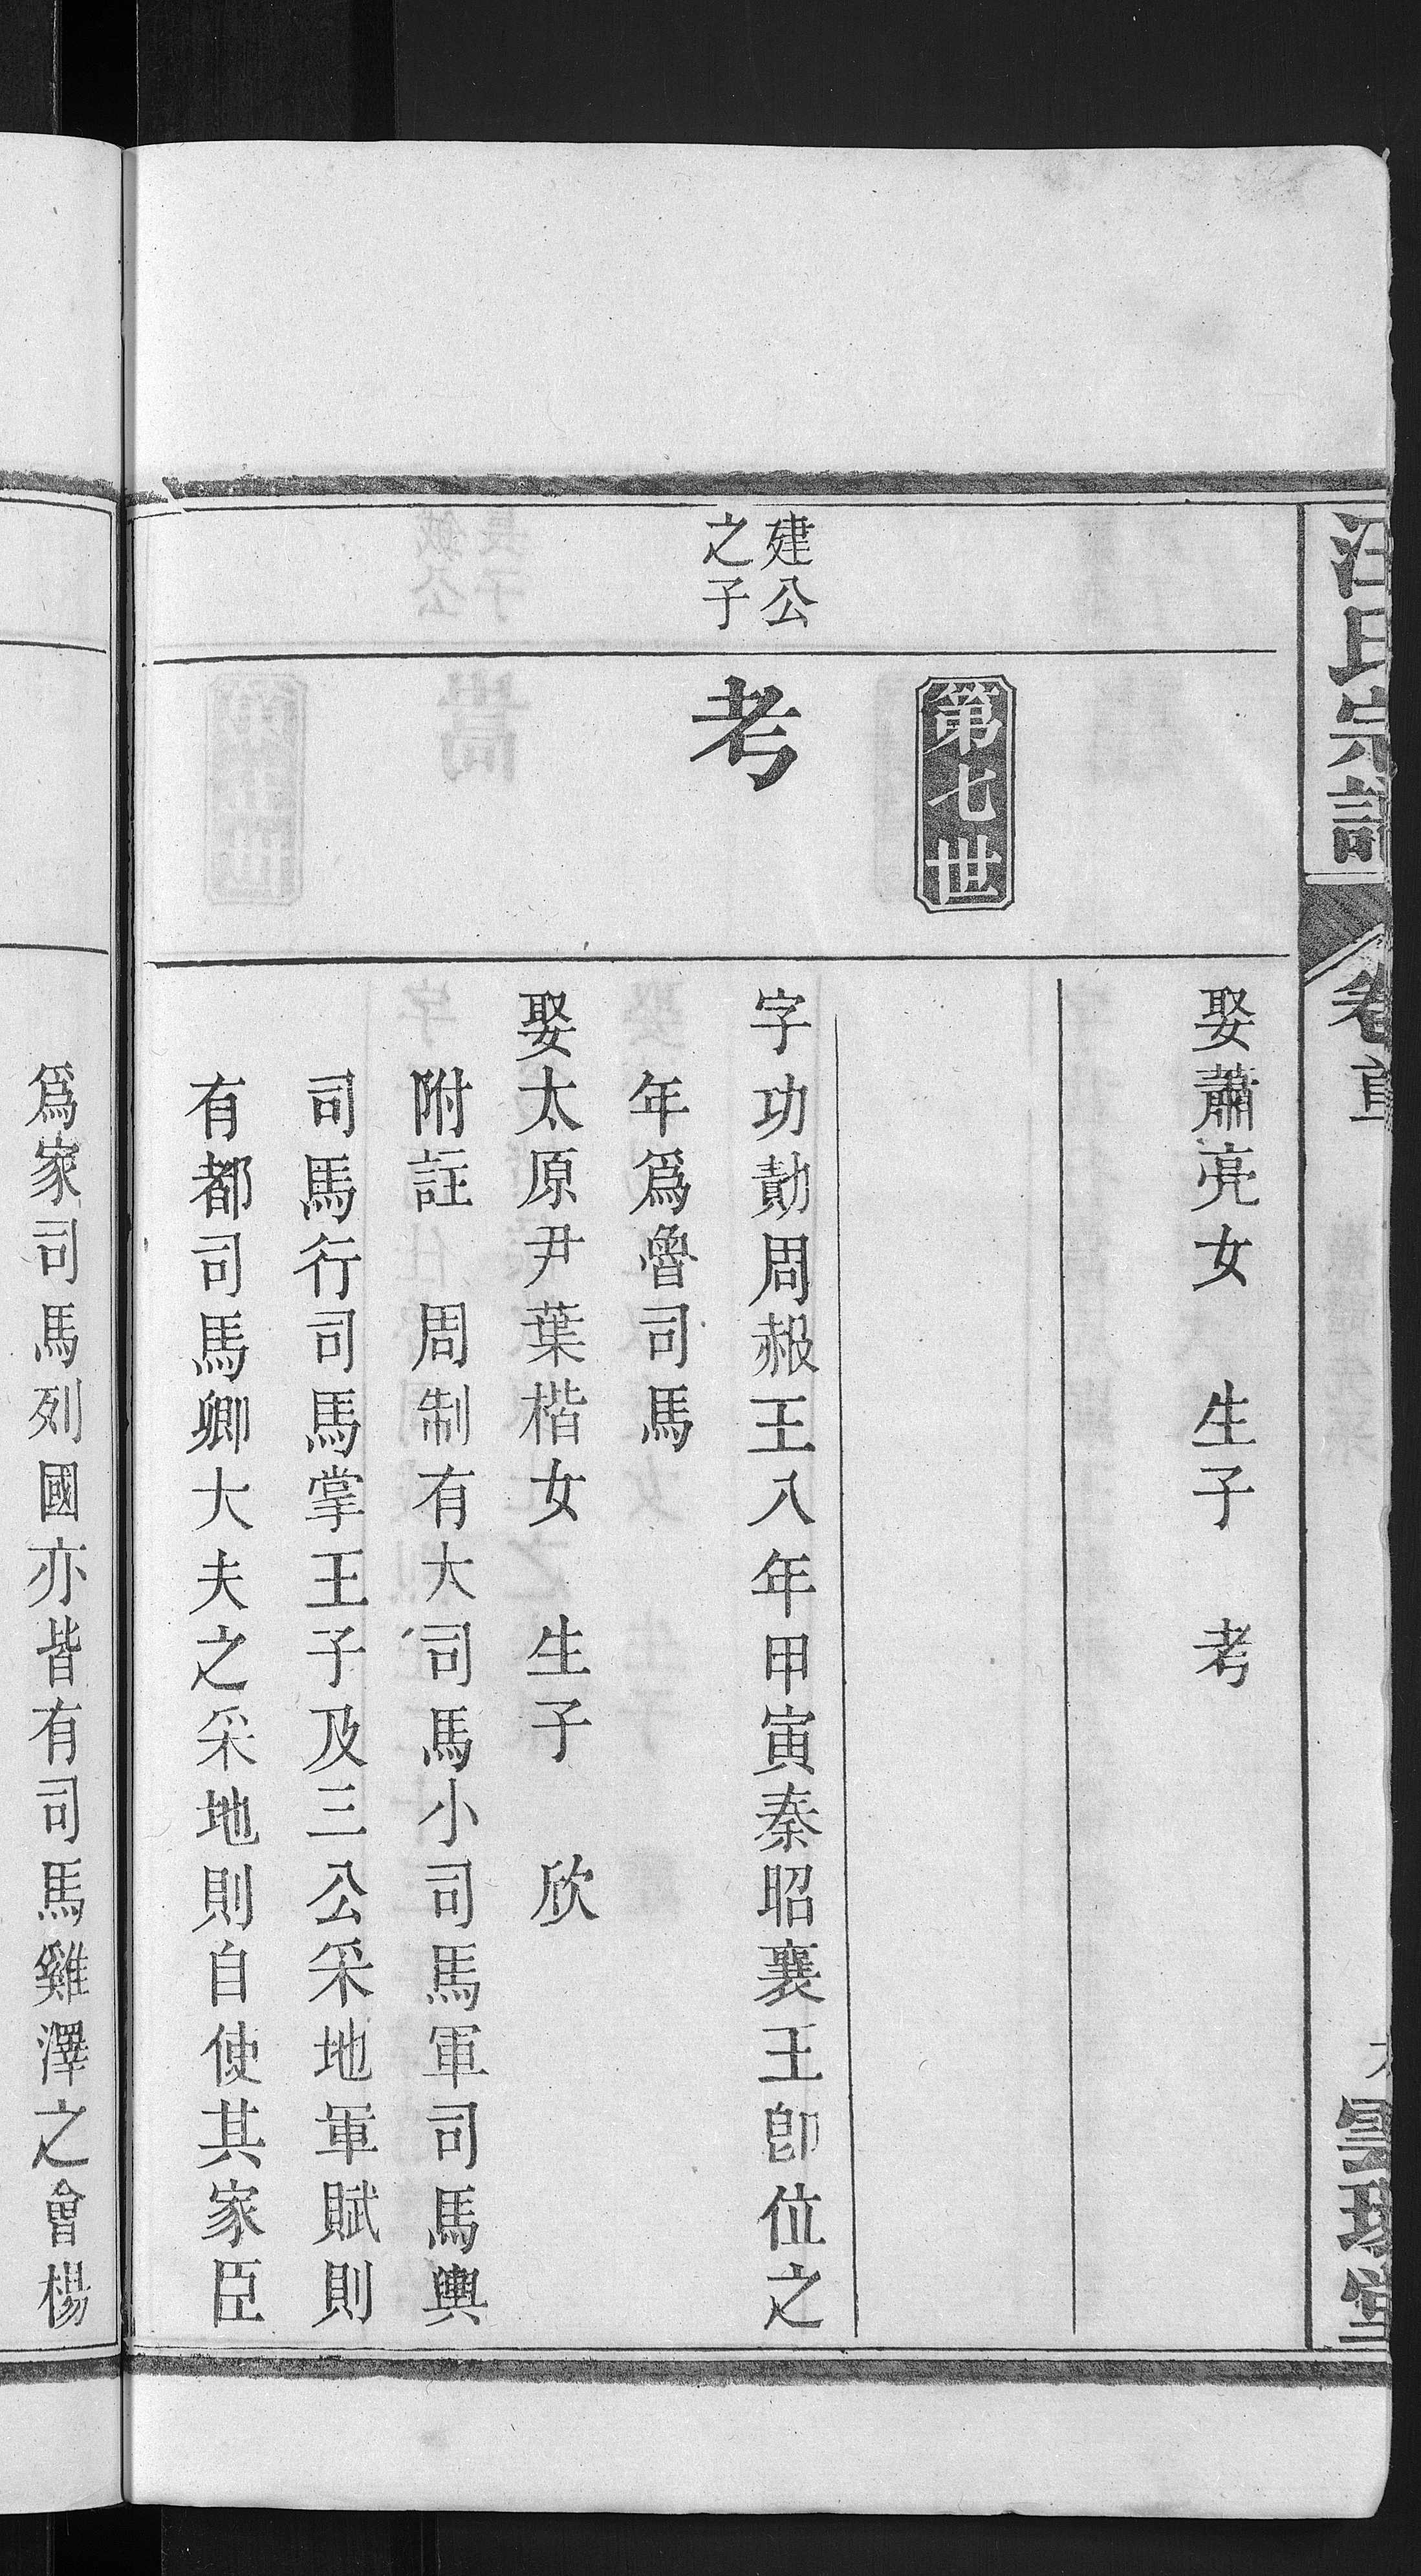 汪氏宗譜
卷首
娶蕭亮女 生子 考
第七世
建公
之子
考
字功勣周赧王八年甲寅秦昭襄王卽位之
年爲魯司馬
娶太原尹葉楷女 生子 欣
附註 周制有大司馬小司馬軍司馬輿
司馬行司馬掌王子及三公采地軍賦則
有都司馬卿大夫之采地則自使其家臣
爲家司馬列國亦皆有司馬雞澤之會楊